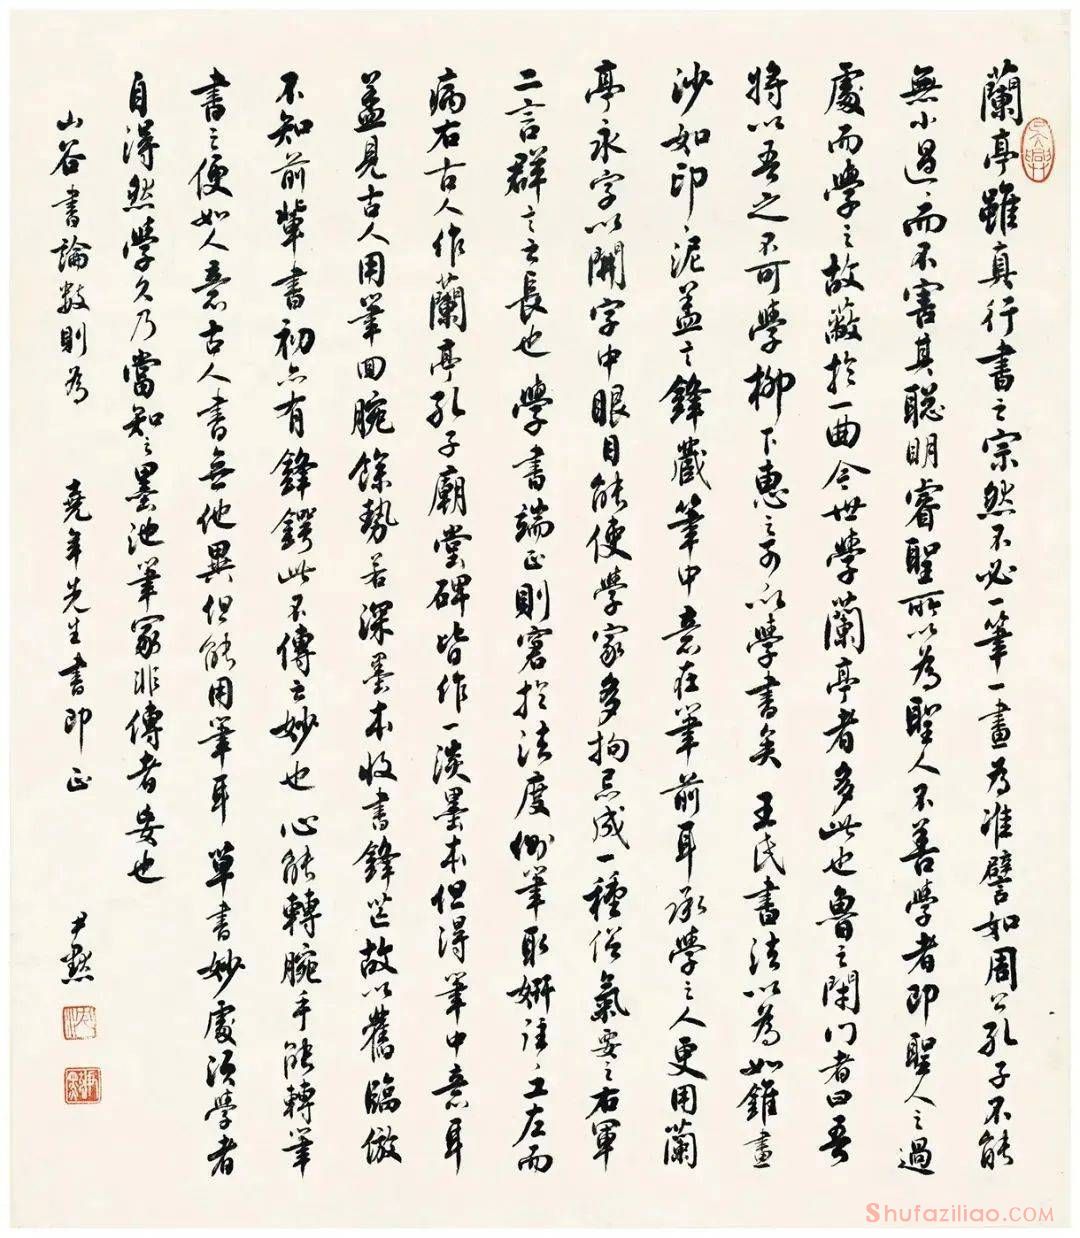 蘭亭雖真行書之宗然不必一筆一畫為准譬如周公孔子不能
無小過過而不害其聰明睿聖所以為聖人不善學者即聖人之過
處而學之故蔽於一曲今世學蘭亭者多此也魯之閉門者曰吾
將以吾之不可學柳下惠之可以學書矣 王氏書法以為如錐畫
沙如印印泥蓋言鋒藏筆中意在筆前耳承學之人更用蘭
亭永字以開字中眼目能使學家多拘忌成一種俗氣要之右軍
二言群言之長也 學書端正則窘於法度側筆取妍往往工左而
病右古人作蘭亭孔子廟堂碑皆作一淡墨本但得筆中意耳
蓋見古人用筆回腕餘勢若深墨本收書鋒芒故以舊臨倣
不知前輩書初亦有鋒鍔此不傳之妙也 心能轉腕手能轉筆
書之便如人意古人書無他異但能用筆耳 草書妙處須學者
自得然學久乃當知之墨池筆冢非傳者妄也
山谷書論數則為 堯年先生書即正 尹默
ShufaziliaO.COM